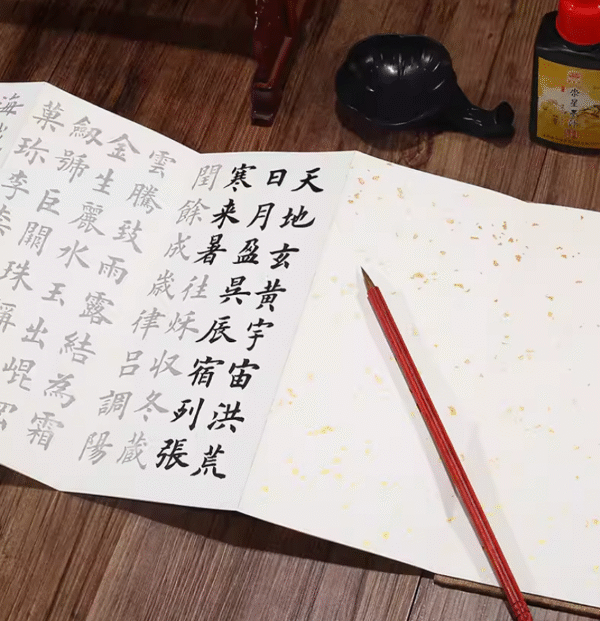 天地玄黃宇宙洪荒
日月盈昃辰宿列張
寒来暑往秋收冬藏
閏餘成歲律呂調陽
雲騰致雨露結為霜
金生麗水玉出崐
劒號巨闕珠稱
菓珍李柰
海